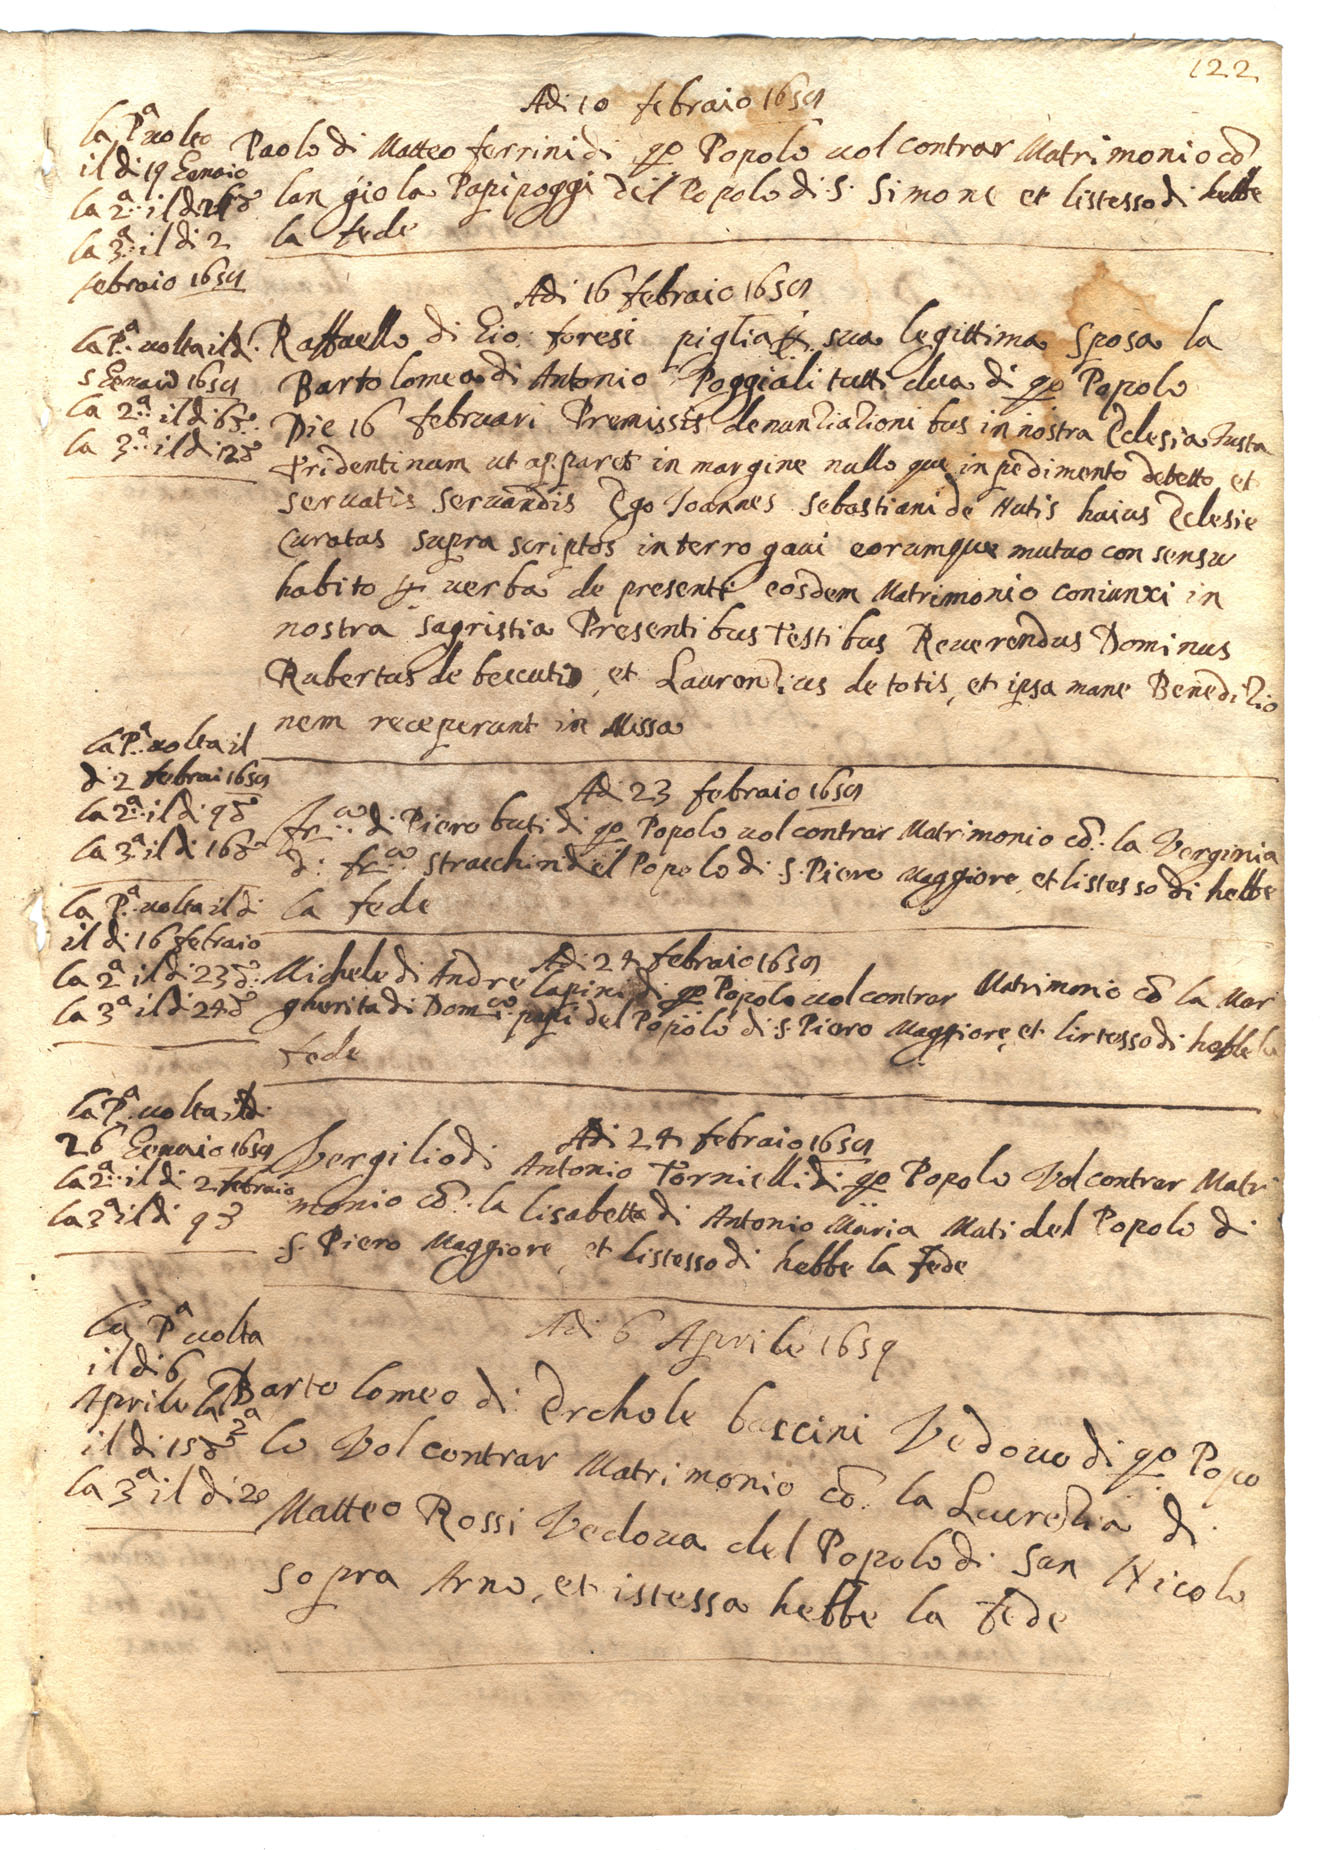 122
Adi 10 febraio 1659
la P.a volta
il di 19 Genaio
la 2.a il di 26 d.o
la 3.a il di 2
febraio 1659
Paolo di Matteo ferrini di qo Popolo vol contrar Matrimonio cō
lan giola Papi poggi del Popolo di S. Simone et listesso di hebbe
la fede
Adi 16 febraio 1659
la P.a volta il di
5 Genaio 1659
la 2.a il di 6 d.o
la 3.a il di 12 d.o
Raffaello di Gio: foresi piglia p sua legittima sposa la
Bartolomea di Antonio Poggiali tutti dua di qo Popolo
Die 16 februari Premissis denuntiationibus in nostra Eclesia Iusta
tridentinum ut apparet in margine nullo que inpedimento detetto et
servatis servandis Ego Joannes Sebastiani de Hutis huius Eclesie
Curatus supra scriptos interrogaui eorumque mutuo consensu
habito p uerba de presenti eosdem Matrimonio coniunxi in
nostra sagristia Presentibus testibus Reuerendus Dominus
Rubertus de bescutis, et Laurentius de totis, et ipsa mane Beneditio
nem receperunt in Missa
Adi 23 febraio 1659
la P.a volta il
di 2 febrai 1659
la 2.a il di 9 d.o
la 3.a il di 16 d.o
fr.co di Piero buti di qo Popolo vol contrar Matrimonio cō. la Verginia
di fr.co stracchini del Popolo di S. Piero Maggiore, et listesso di hebbe
la fede
Adi 24 febraio 1659
la P.a volta il di
il di 16 febraio
la 2.a il di 23 d.o
la 3.a il di 24 d.o
Michele di Andre lapini di qo Popolo vol contrar Matrimonio cō la Mar
gherita di Dom.co papi del Popolo di S. Piero Maggiore, et listesso di hebbe la
fede
Adi 24 febraio 1659
la P.a volta il di
26 Genaio 1659
la 2.a il di 2 febraio
la 3.a il di 9 d.o
Vergilio di Antonio Tornielli di qo Popolo Vol contrar Matri
monio cō. la lisabetta di Antonio Maria Mati del Popolo di
S. Piero Maggiore, et listesso di hebbe la fede
Adi 6 Aprile 1659
la P.a volta
il di 6
Aprile la 2.a
il di 15 d.o
la 3.a il di 20
Bartolomeo di Erchole buscini Vedovo di qo Popo
lo Vol contrar Matrimonio cō. la Lucretia di
Matteo Rossi Vedova del Popolo di San Nicolo
sopra Arno, et istessa hebbe la fede